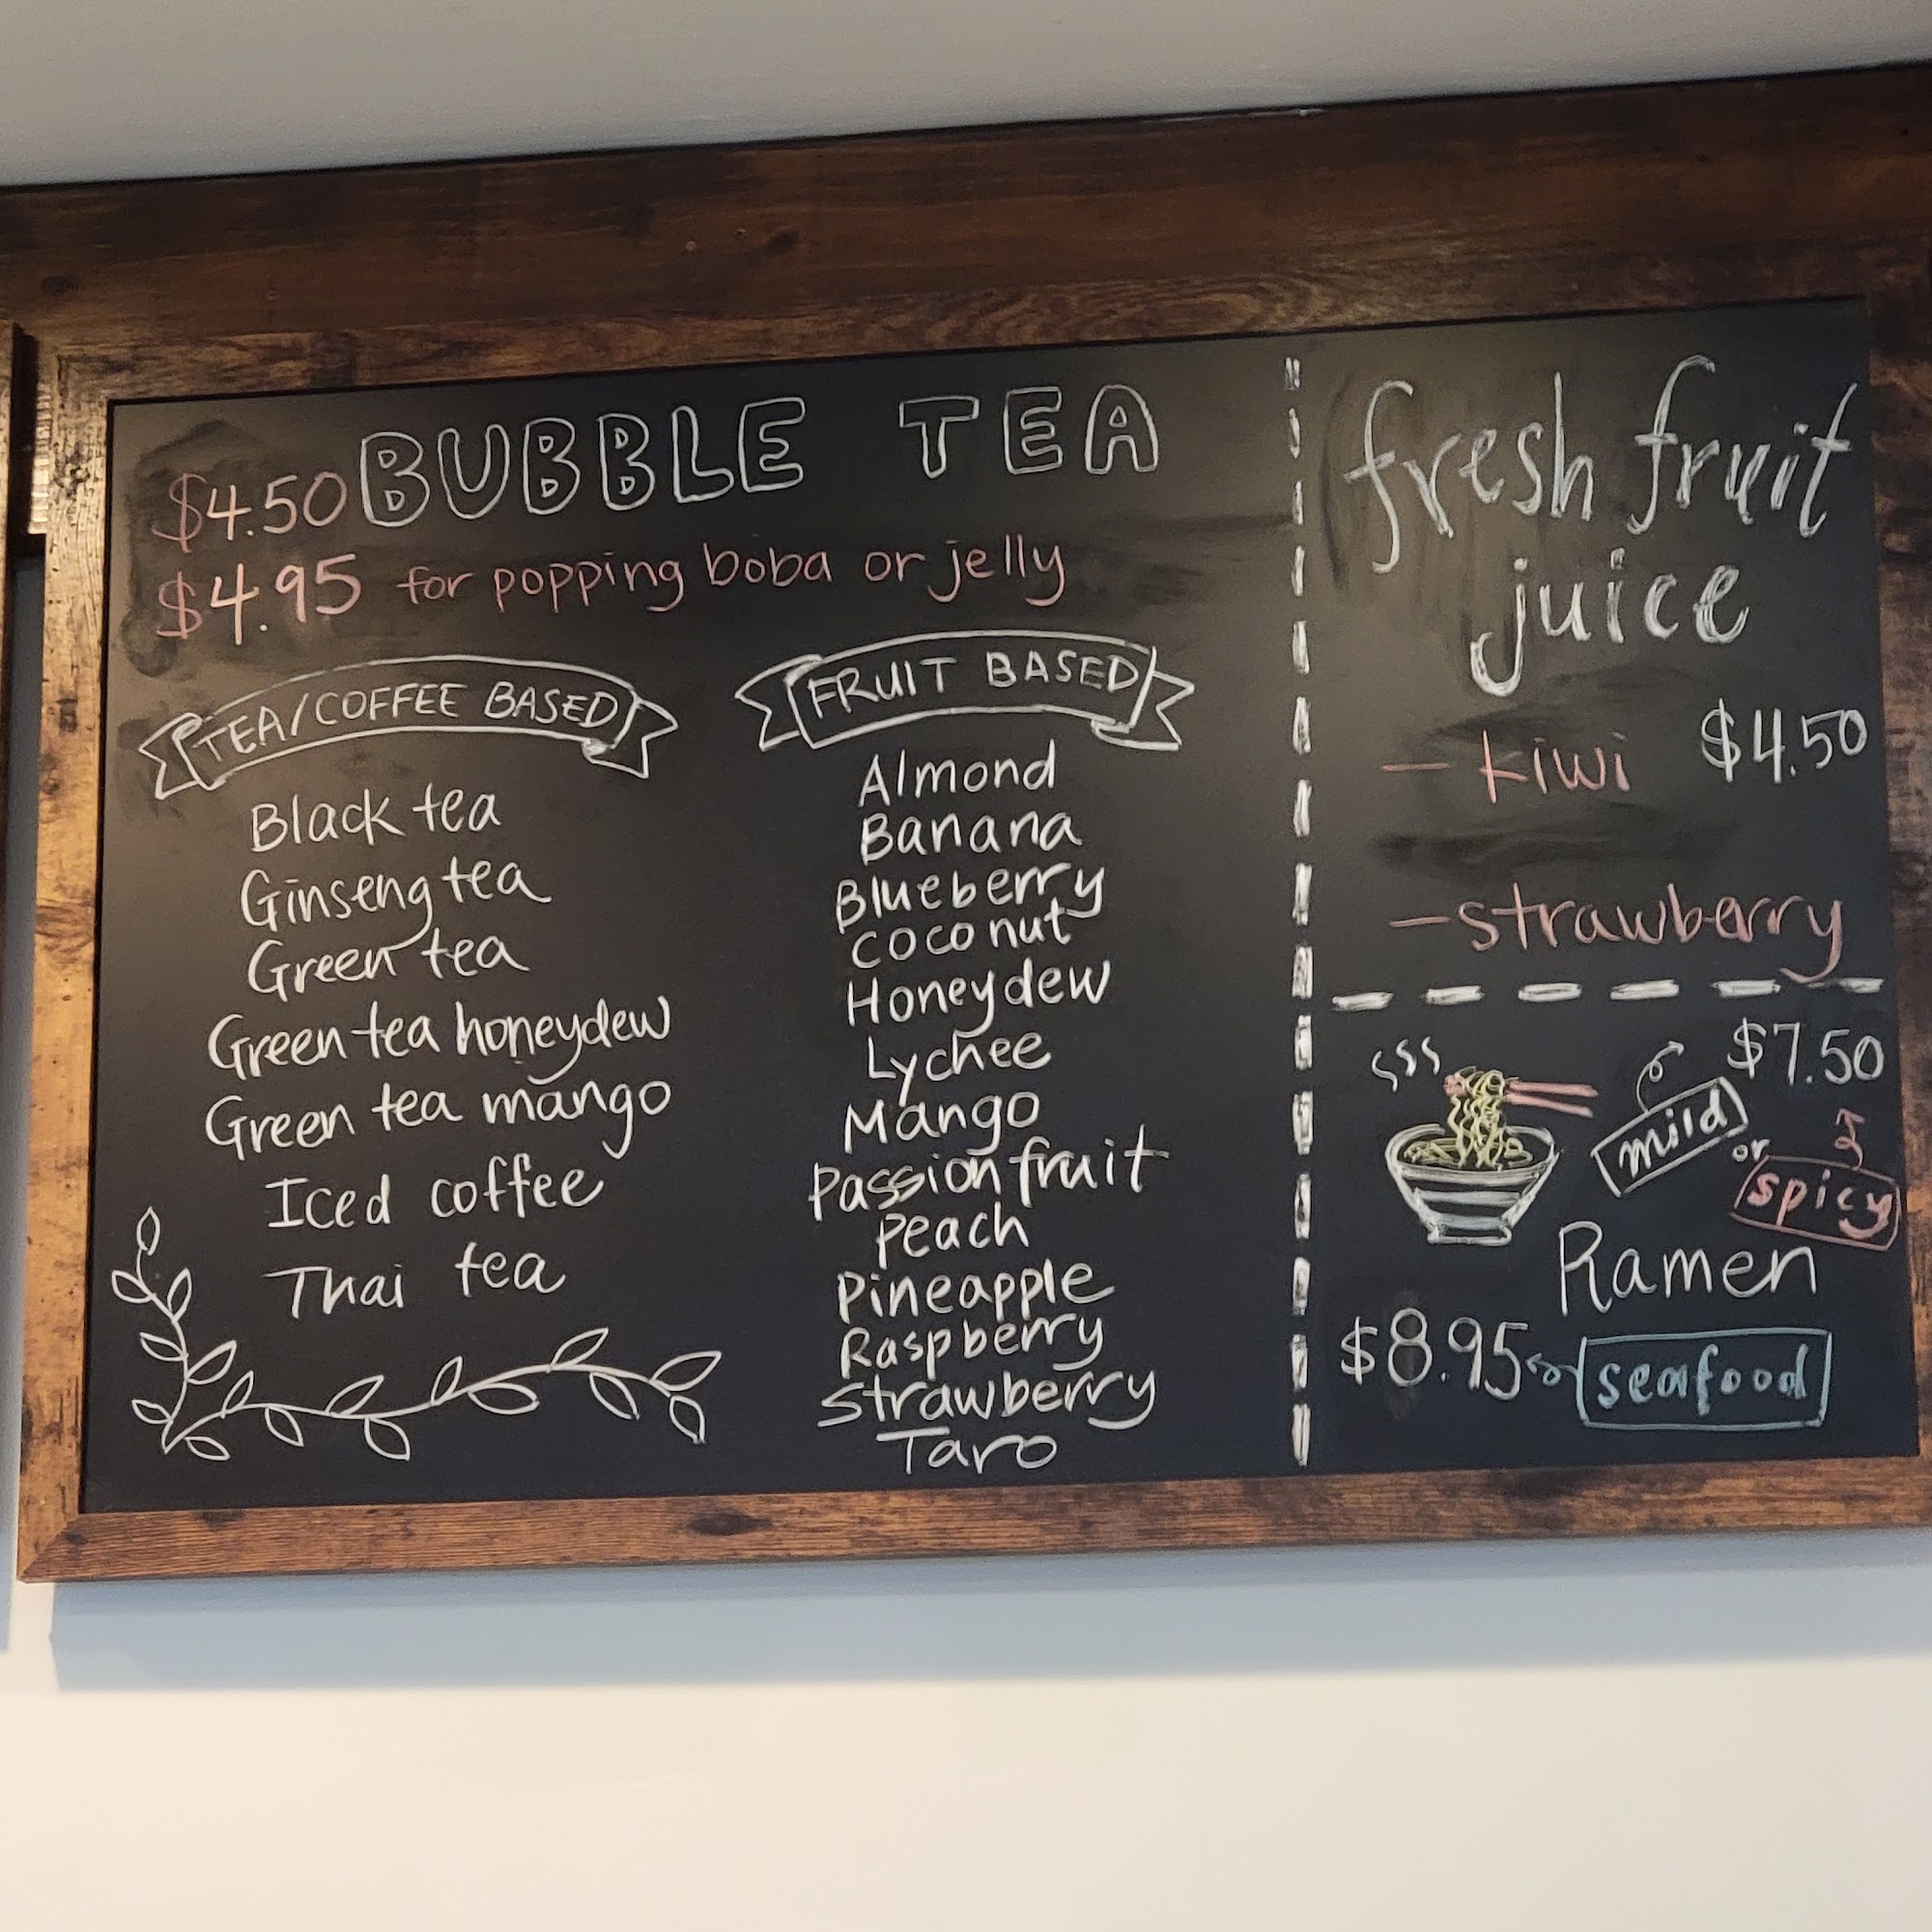 $4.50 BUBBLE TEA
$4.95 for popping boba or jelly
TEA/COFFEE BASED
Black tea
Ginseng tea
Green tea
Green tea honeydew
Green tea mango
Iced coffee
Thai tea
FRUIT BASED
Almond
Banana
Blueberry
Coconut
Honeydew
Lychee
Mango
Passion fruit
Peach
Pineapple
Raspberry
Strawberry
Taro
fresh fruit
juice
- kiwi $4.50
- strawberry
$7.50
mild
or
spicy
Ramen
$8.95 seafood